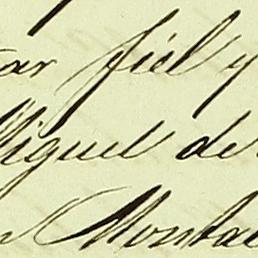 ar fiel y
Miguel de
Monta